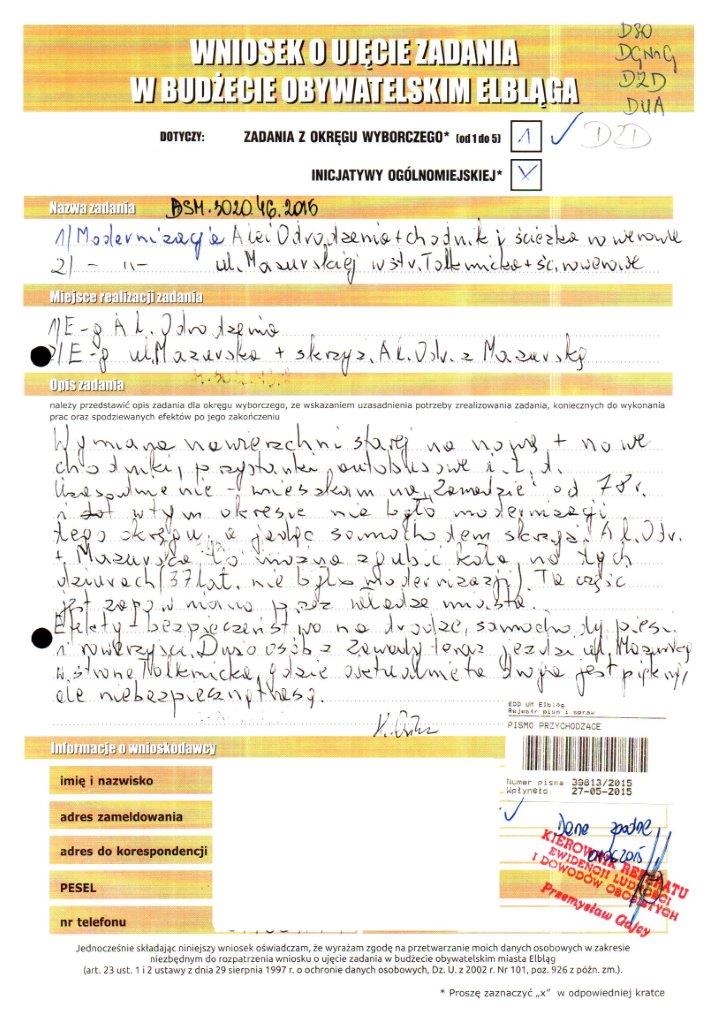 WNIOSEK O UJĘCIE ZADANIA
W BUDŻECIE OBYWATELSKIM ELBLĄGA
DGNiG
DZD
DUA
DOTYCZY: ZADANIA Z OKRĘGU WYBORCZEGO* (od 1 do 5) 1 DZD
INICJATYWY OGÓLNOMIEJSKIEJ* X
Nazwa zadania DSM.3020.46.2015
1/ Modernizacja Alei Odrodzenia + chodnik i ścieżka rowerowe
2/ - 11 - ul. Mazurskiej w str. Tolkmicka + śc. rowerowe
Miejsce realizacji zadania
1/ E-g Al. Odrodzenia
2/ E-g ul. Mazurska + skrzyż. Al. Odr. z Mazurską
Opis zadania
należy przedstawić opis zadania dla okręgu wyborczego, ze wskazaniem uzasadnienia potrzeby zrealizowania zadania, koniecznych do wykonania
prac oraz spodziewanych efektów po jego zakończeniu
Wymiana nawierzchni starej na nową + nowe
chodniki, przystanki autobusowe i.t.d.
Uzasadnienie - mieszkam na "Zawadzie" od 78r.
i w tym okresie nie było modernizacji
tego okręgu, a jadąc samochodem skrzyż. Al. Odr.
+ Mazurska to można zgubić koła na tych
dziurach (37 lat. nie było modernizacji). Ta część
jest zapomniana przez władze miasta.
Efekty - bezpieczeństwo na drodze, samochody, piesi
i rowerzyści. Dużo osób z Zawady teraz jeździ ul. Mazurską
w stronę Tolkmicka, gdzie aktualnie ta droga jest piękna,
ale niebezpieczną trasą.
EOD UM Elbląg
Rejestr pism i spraw
PISMO PRZYCHODZĄCE
Numer pisma 39813/2015
Wpłynęło 27-05-2015
Informacje o wnioskodawcy
imię i nazwisko
adres zameldowania
adres do korespondencji
PESEL
nr telefonu
Dane zgodne
KIEROWNIK REFERATU
EWIDENCJI LUDNOŚCI
I DOWODÓW OSOBISTYCH
Przemysław
Jednocześnie składając niniejszy wniosek oświadczam, że wyrażam zgodę na przetwarzanie moich danych osobowych w zakresie
niezbędnym do rozpatrzenia wniosku o ujęcie zadania w budżecie obywatelskim miasta Elbląg
(art. 23 ust. 1 i 2 ustawy z dnia 29 sierpnia 1997 r. o ochronie danych osobowych, Dz. U. z 2002 r. Nr 101, poz. 926 z późn. zm.).
* Proszę zaznaczyć „x" w odpowiedniej kratce